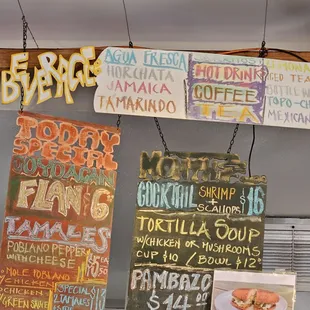 BEVERAGE
AGUA FRESCA
HORCHATA
JAMAICA
TAMARINDO
HOT DRINK
COFFEE
TEA
ICED TEA
BOTTLE W
TOPO-CH
MEXICAN
TODAY
SPECIAL
FLAN $6
TAMALES
POBLANO PEPPER
WITH CHEESE
MOLE POBLANO
CHICKEN
GREEN SAUCE
CHICKEN
SPECIAL
TAMALES
COCKTAIL SHRIMP + SCALLOPS $16
TORTILLA SOUP
W/CHICKEN OR MUSHROOMS
CUP $10 / BOWL $12
PAMBAZO
$14.00